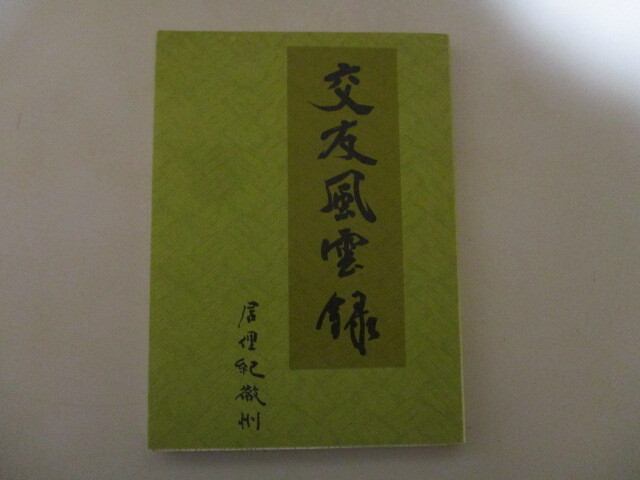 交友風雲録
居俚紀徹州